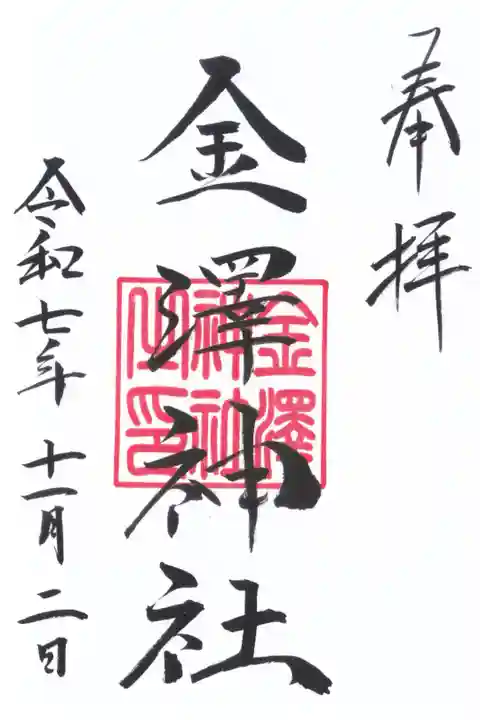 奉拝
金澤神社
金澤
神社
之印
令和七年十一月二日